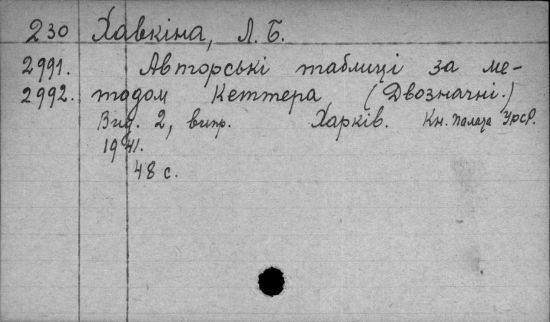 230 Хавкіна, Л. Б.
2991. Авторські таблиці за ме-
2992. тодом Кеттера (Двозначні.)
Вид. 2, випр. Харків. Кн. палата УРСР.
1941.
48 с.